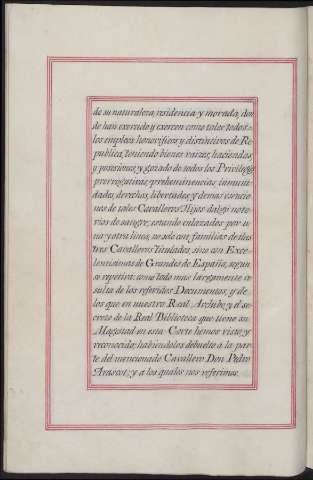 de su naturaleza, residencia y morada, don
de han exercido y exercen como tales todos
los empleos honorificos y distinctivos de Re
publica, teniendo bienes raizes, haciendas,
y posesiones, y gozado de todos los Privilegs.
prerrogativas, prehemninencias, inmuni
dades, derechos, libertades, y demas esencio
nes de tales Cavalleros Hijos dalgo noto
rios de sangre, estando enlazados por u
na y otra linea, no solo con familias de Ilus
tres Cavalleros Titulados, sino con Exce
lentisimas de Grandes de España, segun
se repetira: como todo mas largamente re
sulta de los referidos Documentos, y de
los que en nuestro Real Archibo, y el se
creto de la Real Biblioteca que tiene su
Magestad en esta Corte hemos visto, y
reconocido; habiendolos debuelto a la par
te del mencionado Cavallero Don Pedro
Arascot; y a los quales nos referimos.